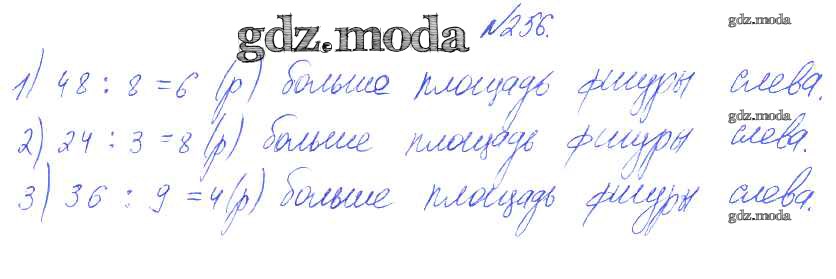 №256.
gdz.moda
gdz.moda
1) 48 : 8 = 6 (р) больше площадь фигуры слева.
gdz.moda
2) 24 : 3 = 8 (р) больше площадь фигуры слева.
3) 36 : 9 = 4 (р) больше площадь фигуры слева.
gdz.moda